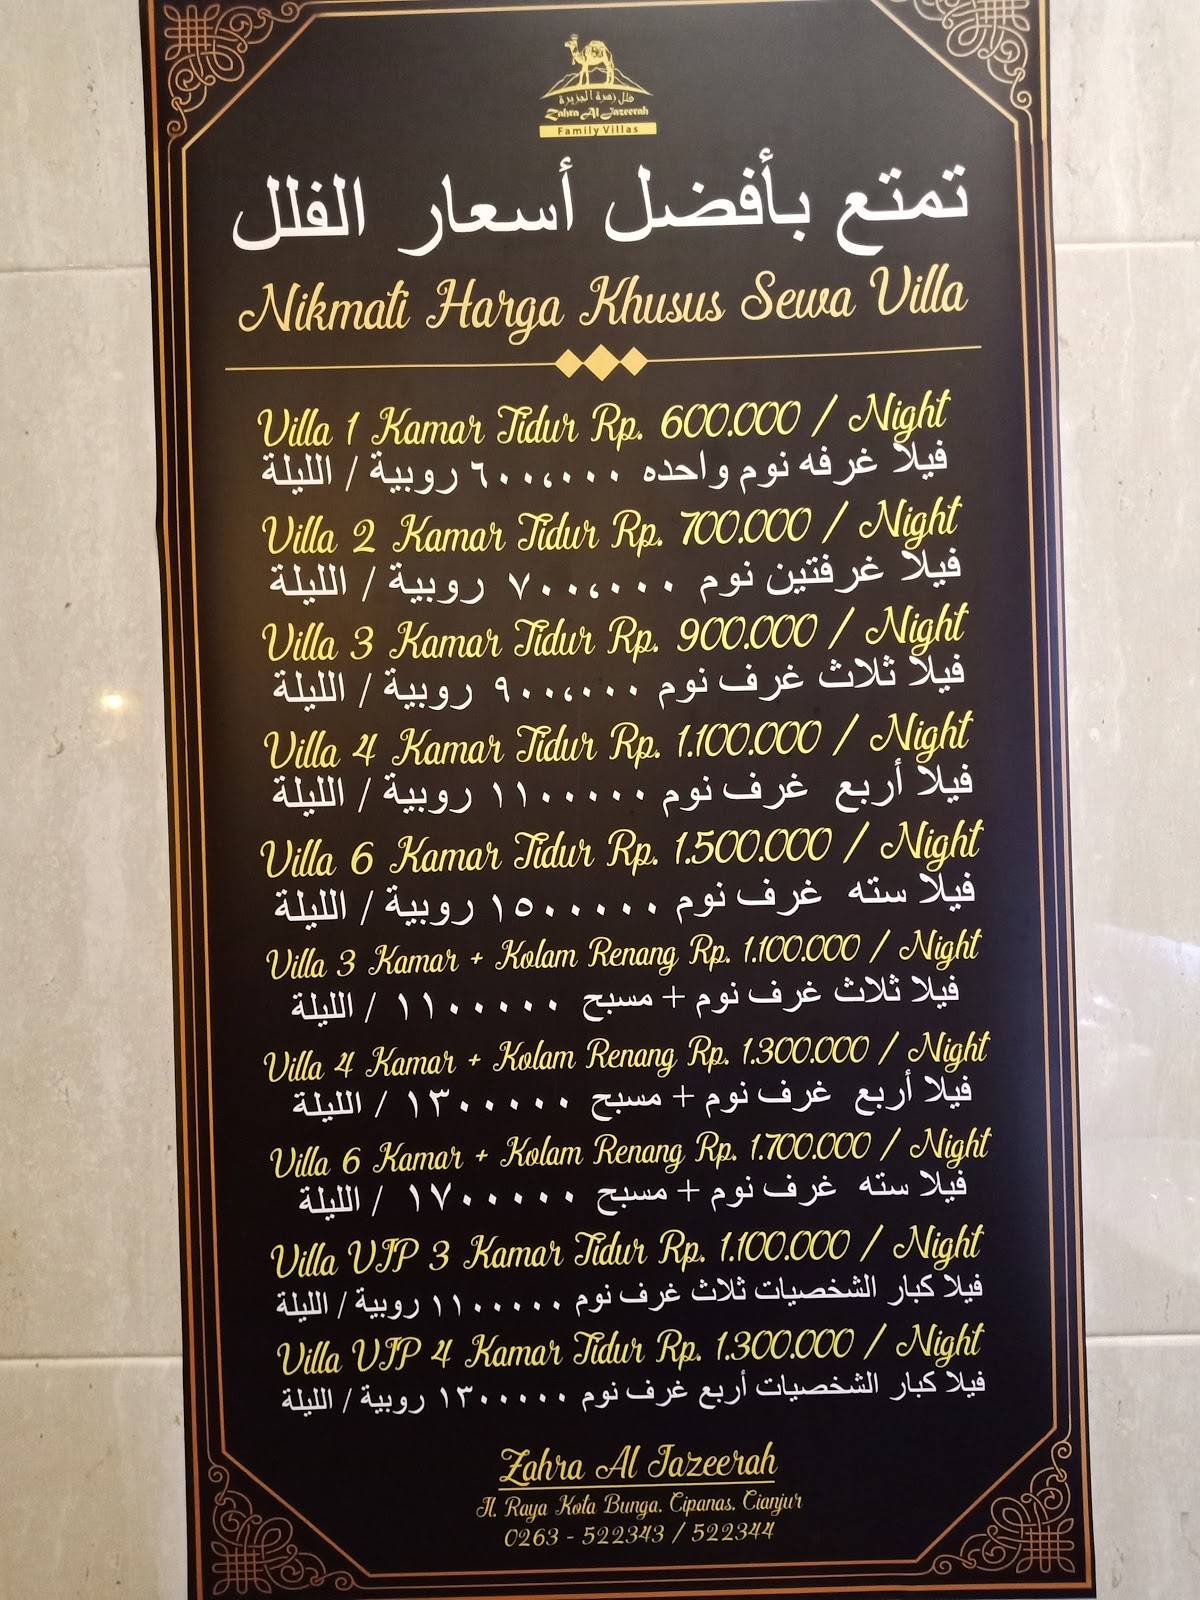 فلل زهرة الجزيرة
Zahra Al Jazeerah
Family Villas
تمتع بأفضل أسعار الفلل
Nikmati Harga Khusus Sewa Villa
Villa 1 Kamar Tidur Rp. 600.000 / Night
فيلا غرفه نوم واحده ٦٠٠،٠٠٠ روبية / الليلة
Villa 2 Kamar Tidur Rp. 700.000 / Night
فيلا غرفتين نوم ٧٠٠،٠٠٠ روبية / الليلة
Villa 3 Kamar Tidur Rp. 900.000 / Night
فيلا ثلاث غرف نوم ٩٠٠،٠٠٠ روبية / الليلة
Villa 4 Kamar Tidur Rp. 1.100.000 / Night
فيلا أربع غرف نوم ١١٠٠٠٠٠ روبية / الليلة
Villa 6 Kamar Tidur Rp. 1.500.000 / Night
فيلا سته غرف نوم ١٥٠٠٠٠٠ روبية / الليلة
Villa 3 Kamar + Kolam Renang Rp. 1.100.000 / Night
فيلا ثلاث غرف نوم + مسبح ١١٠٠٠٠٠ / الليلة
Villa 4 Kamar + Kolam Renang Rp. 1.300.000 / Night
فيلا أربع غرف نوم + مسبح ١٣٠٠٠٠٠ / الليلة
Villa 6 Kamar + Kolam Renang Rp. 1.700.000 / Night
فيلا سته غرف نوم + مسبح ١٧٠٠٠٠٠ / الليلة
Villa VIP 3 Kamar Tidur Rp. 1.100.000 / Night
فيلا كبار الشخصيات ثلاث غرف نوم ١١٠٠٠٠٠ روبية / الليلة
Villa VIP 4 Kamar Tidur Rp. 1.300.000 / Night
فيلا كبار الشخصيات أربع غرف نوم ١٣٠٠٠٠٠ روبية / الليلة
Zahra Al Jazeerah
Jl. Raya Kota Bunga, Cipanas, Cianjur
0263 - 522343 / 522344